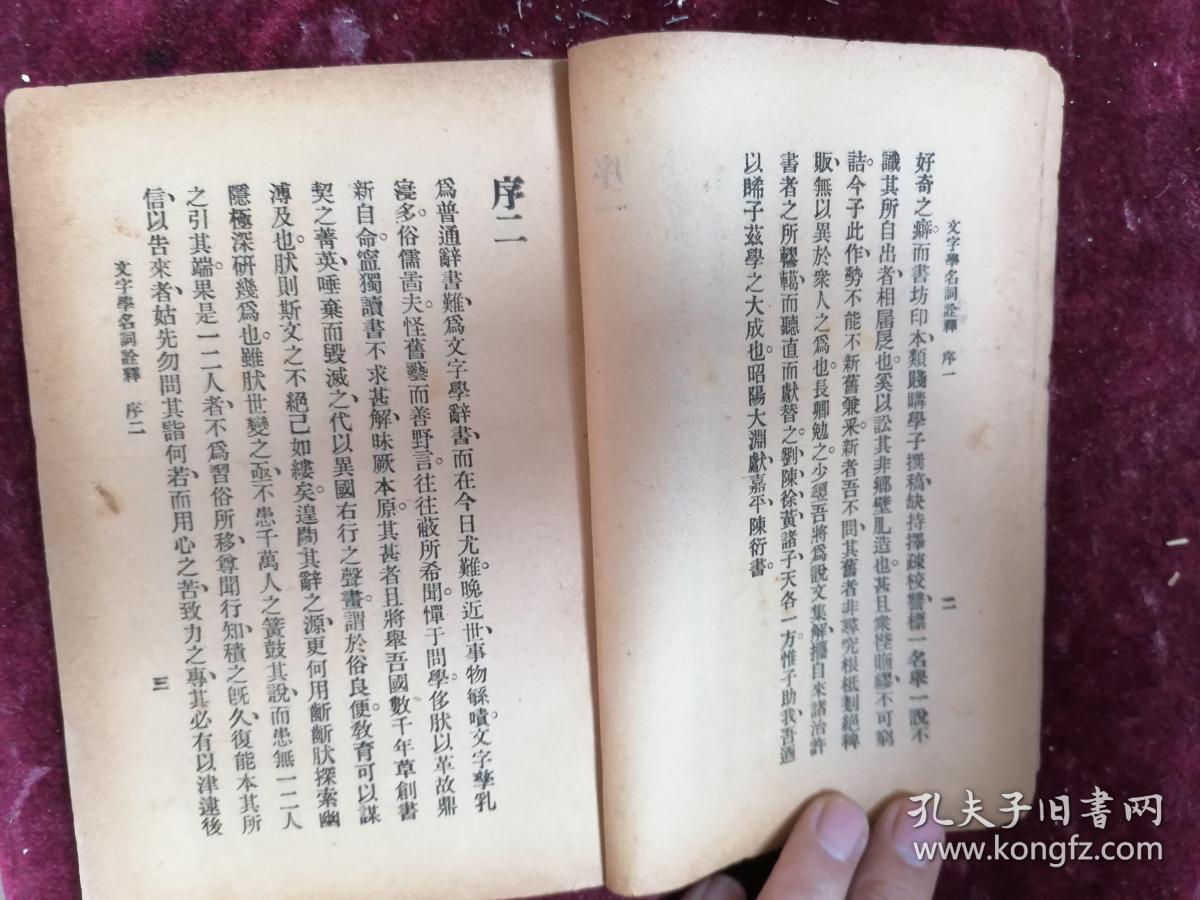 文字學名詞詮釋 序一
二
好奇之癖。而書坊印本、類賤購學子撰稿、缺持擇、疎校讐、標一名、舉一說、不
識其所自出者、相屬也。奚以訟其非鄉壁虛造也。甚且衆陛繆、不可窮
詰。今子此作、勢不能不新舊兼采。新者吾不問、其舊者非尋究根柢、剗絕稗
販、無以異於衆人之爲也。長卿勉之。少遲、吾將爲說文集解、攟自來諸治許
書者之所轇轕、而聽直而獻替之。劉、陳、徐、黃諸子、天各一方。惟子助我、吾迺
以睎子茲學之大成也。昭陽大淵獻嘉平、陳衍書
序二
爲普通辭書難、爲文字學辭書、而在今日尤難。晚近世事物緐嘖、文字孳乳
寖多。俗儒啚夫、怪舊藝而善野言。往往蔽所希聞、憚于問學。侈肰以革故鼎
新自命。寍獨讀書不求甚解、昧厥本原。其甚者且將舉吾國數千年草創書
契之菁英、唾棄而毀滅之、代以異國右行之聲畫。謂於俗良便、敎育可以謀
溥及也。肰則斯文之不絕、己如縷矣。遑闚其辭之源、更何用齗齗肰探索幽
隱、極深研幾爲也。雖肰、世變之亟、不患千萬人之簧鼓其說、而患無一二人
之引其端。果是一二人者、不爲習俗所移、尊聞行知、積之旣久、復能本其所
信、以告來者、姑先勿問其詣何若、而用心之苦、致力之專、其必有以津逮後
文字學名詞詮釋 序二
三
孔夫子旧书网
www.kongfz.com